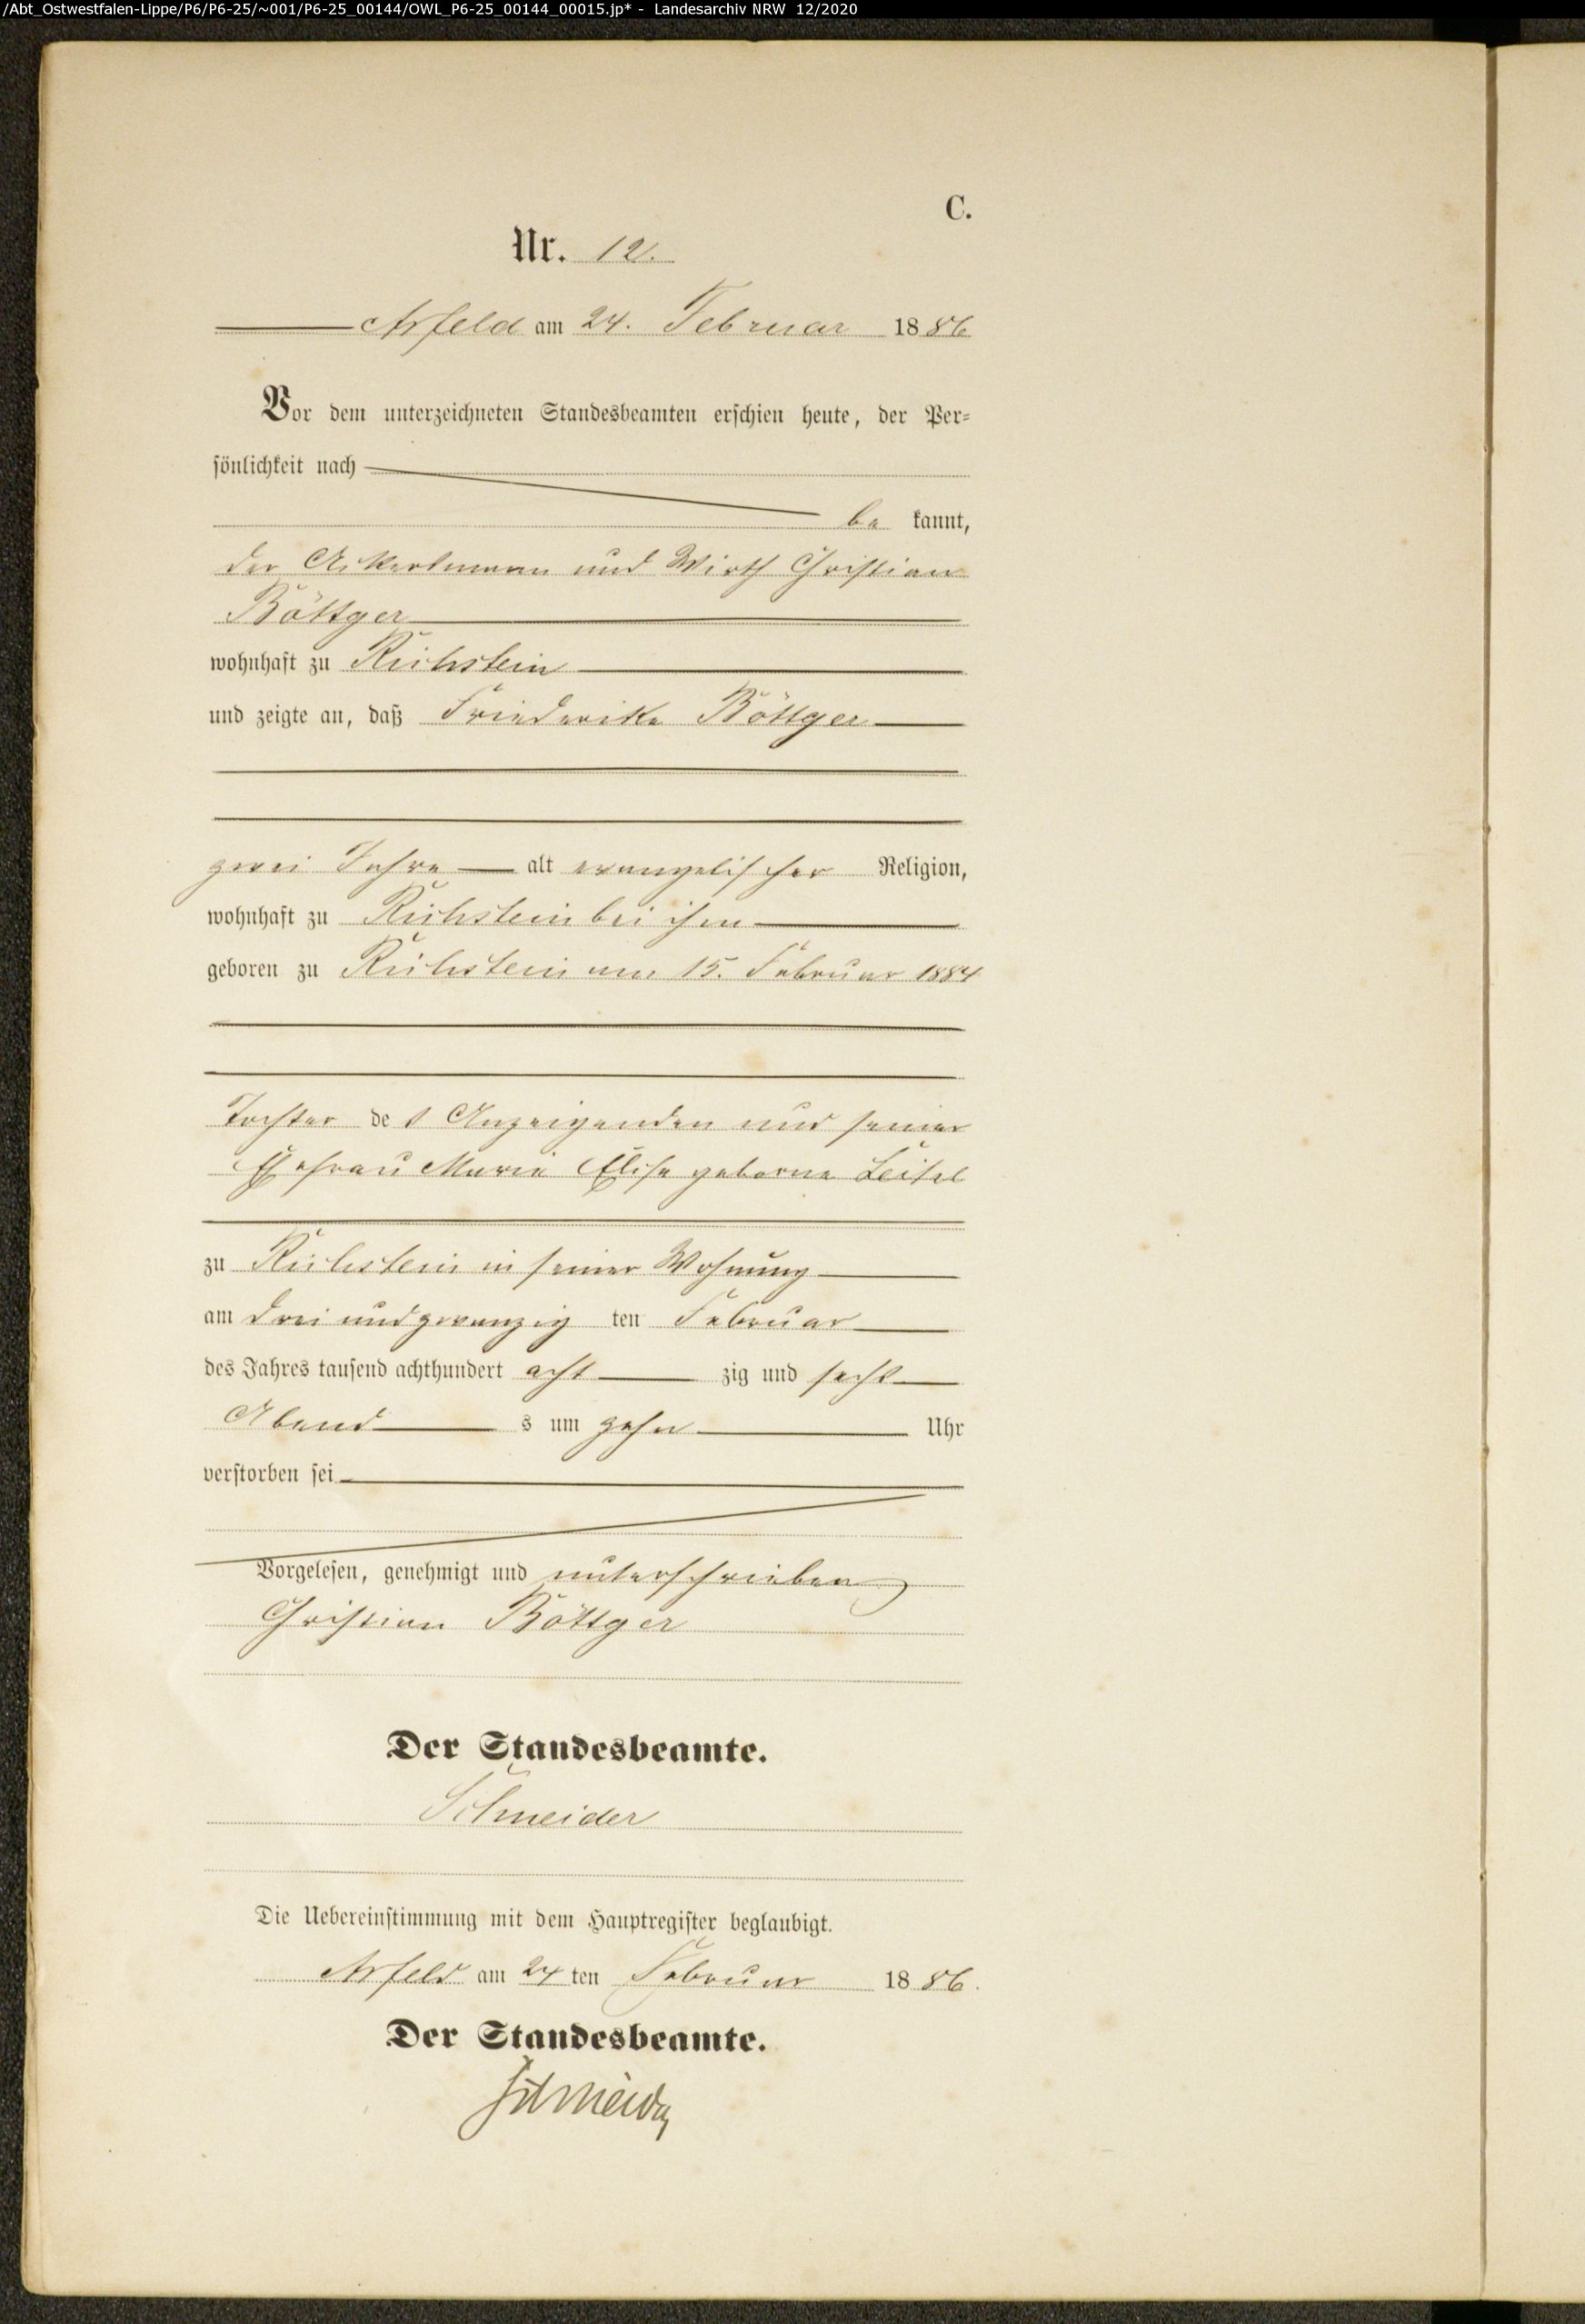 /Abt_Ostwestfalen-Lippe/P6/P6-25/~001/P6-25_00144/OWL_P6-25_00144_00015.jp* - Landesarchiv NRW 12/2020
C.
Nr. 12.
Arfeld am 24. Februar 1886
Vor dem unterzeichneten Standesbeamten erschien heute, der Per-
sönlichkeit nach
be kannt,
der Ackersmann und Wirth Christian
Böttger
wohnhaft zu Richstein
und zeigte an, daß Friederike Böttger
zwei Jahre alt evangelischer Religion,
wohnhaft zu Richstein bei ihm
geboren zu Richstein am 15. Februar 1884
Tochter des Anzeigenden und seiner
Ehefrau Marie Elise geborne
zu Richstein in seiner Wohnung
am drei und zwanzig ten Februar
des Jahres tausend achthundert acht zig und sechs
Abend s um zehn Uhr
verstorben sei
Vorgelesen, genehmigt und unterschrieben
Christian Böttger
Der Standesbeamte.
Schneider
Die Uebereinstimmung mit dem Hauptregister beglaubigt.
Arfeld am 24 ten Februar 1886.
Der Standesbeamte.
Schneider